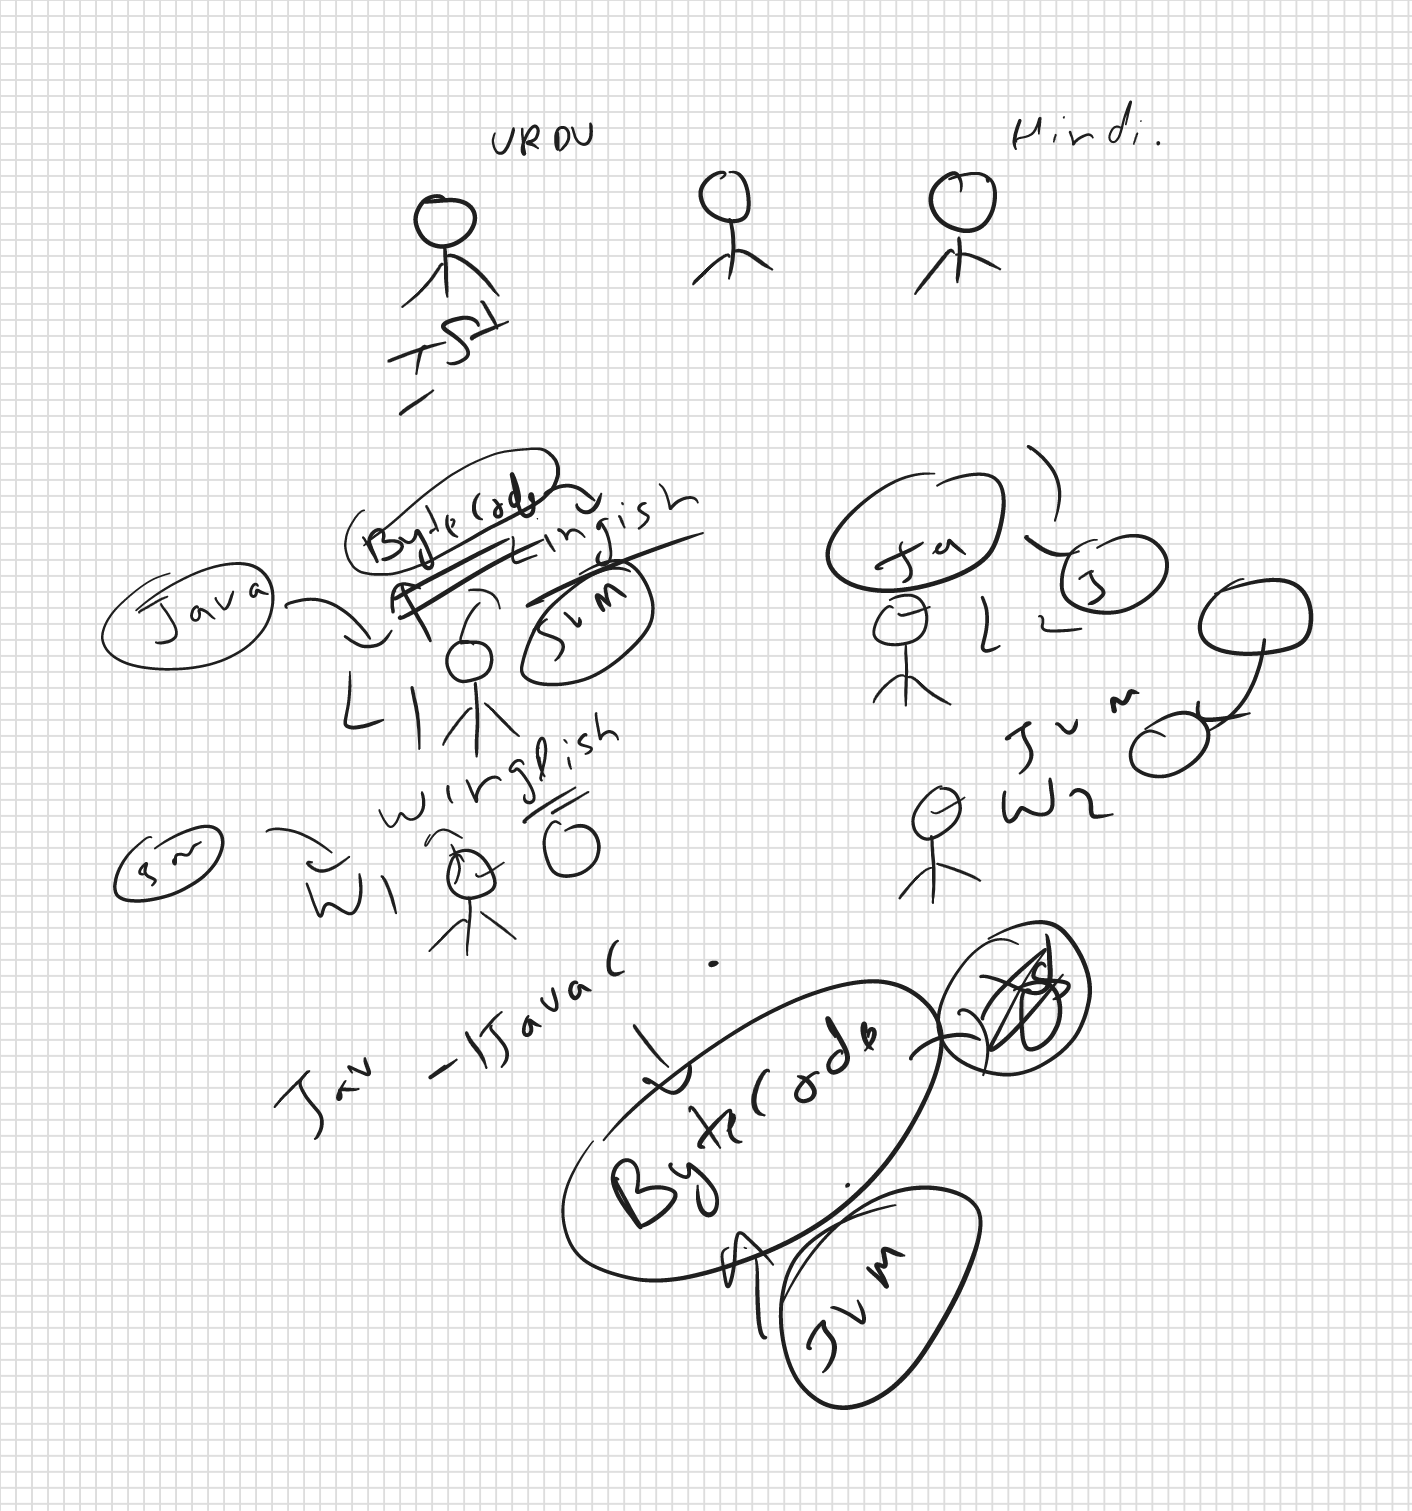 URDU
Hindi.
ByteCode
Lingish
Java
JVM
Ja
J
L1
L2
JVM
Winglish
W2
W1
Jav - Javac
ByteCode
JVM